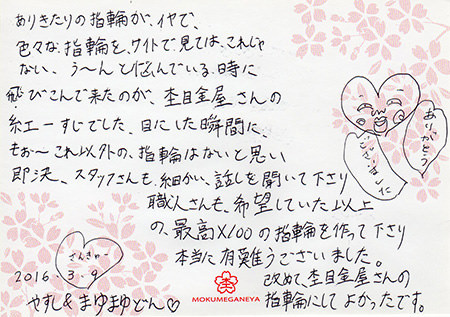 ありきたりの指輪が、イヤで、
色々な、指輪を、サイトで見ては、これじゃ
ない、う〜んと悩んでいる、時に
飛びこんで来たのが、杢目金屋さんの
紅一すじでした、目にした瞬間に、
もぉ〜これ以外の、指輪はないと思い
即決、スタッフさんも、細かい、話しを聞いて下さり
職人さんも、希望していた以上
の、最高×100の指輪を作って下さり
本当に有難うございました。
改めて、杢目金屋さんの
指輪にしてよかったです。
ありがとう
ございました
さんきゅー
2016.3.9
やすし&まゆまゆどん♡
MOKUMEGANEYA